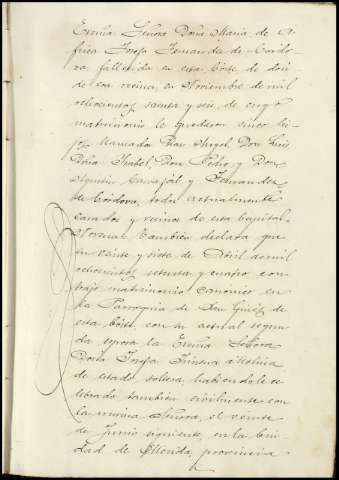 Excma Señora Doña Maria de Á-
frica Josefa Fernandez de Cordo-
va, fallecida en esta Córte de don-
de era vecina, en Noviembre de mil
ochocientos sesenta y seis, de cuyo
matrimonio le quedaron cinco hi-
jos llamados Don Angel, Don Luis,
Doña Isabel, Don Pedro y Don
Agustin Carvajal y Fernandez
de Córdova, todos actualmente
casados y vecinos de esta Capital.
Tercera: Tambien declara que
en veinte y siete de Abril de mil
ochocientos setenta y cuatro con-
trajo matrimonio canónico en
la Parroquia de San Ginés de
esta Córte, con su actual segun-
da esposa la Excma Señora
Doña Josefa Jimenez á Molina
de estado soltera, habiendole ce-
lebrado tambien civilmente con
la misma Señora, el veinte
de Junio siguiente, en la Ciu-
dad de Mérida, provincia